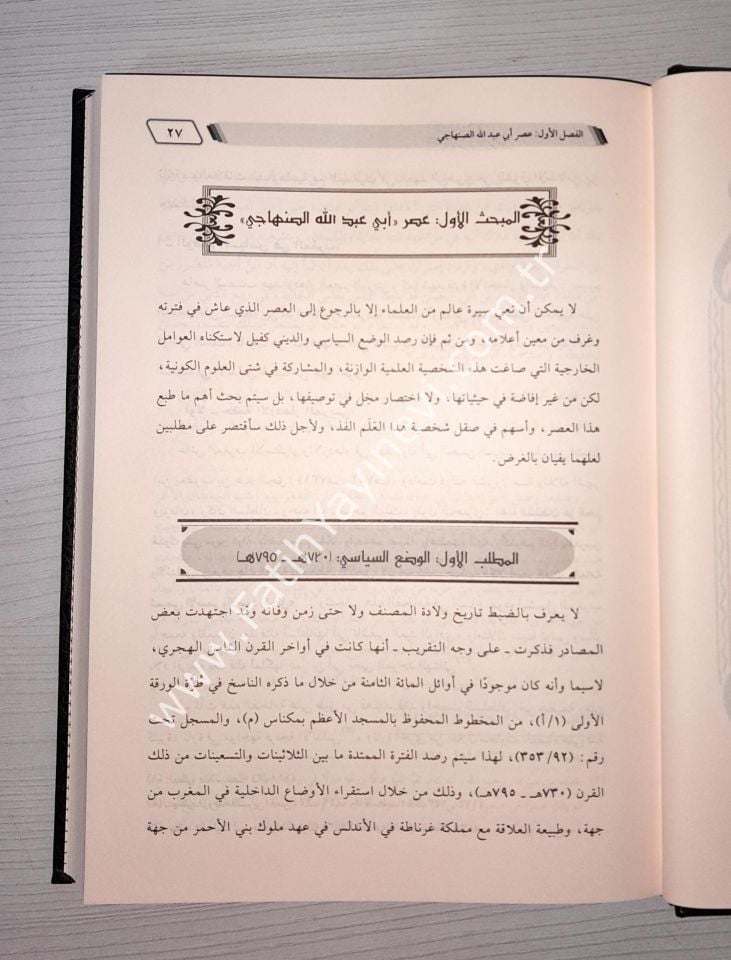 الفصل الأول: عصر أبي عبد الله الصنهاجي
٢٧
المبحث الأول: عصر «أبي عبد الله الصنهاجي»
لا يمكن أن نعي سيرة عالم من العلماء إلا بالرجوع إلى العصر الذي عاش في فترته
وغرف من معين أعلامه، ومن ثم فإن رصد الوضع السياسي والديني كفيل لاستكناه العوامل
الخارجية التي صاغت هذه الشخصية العلمية الوازنة، والمشاركة في شتى العلوم الكونية،
لكن من غير إفاضة في حيثياتها، ولا اختصار مخِل في توصيفها، بل سيتم بحث أهم ما طبع
هذا العصر، وأسهم في صقل شخصية هذا العَلَم الفذ، ولأجل ذلك سأقتصر على مطلبين
لعلهما يفيان بالغرض.
المطلب الأول: الوضع السياسي: (٧٣٠هـ ـ ٧٩٥هـ)
لا يعرف بالضبط تاريخ ولادة المصنف ولا حتى زمن وفاته وقد اجتهدت بعض
المصادر فذكرت ـ على وجه التقريب ـ أنها كانت في أواخر القرن الثامن الهجري،
لاسيما وأنه كان موجودًا في أوائل المائة الثامنة من خلال ما ذكره الناسخ في طرة الورقة
الأولى (١/أ)، من المخطوط المحفوظ بالمسجد الأعظم بمكناس (م)، والمسجل تحت
رقم: (٣٥٣/٩٢)، لهذا سيتم رصد الفترة الممتدة ما بين الثلاثينات والتسعينات من ذلك
القرن (٧٣٠هـ ـ ٧٩٥هـ)، وذلك من خلال استقراء الأوضاع الداخلية في المغرب من
جهة، وطبيعة العلاقة مع مملكة غرناطة في الأندلس في عهد ملوك بني الأحمر من جهة
www.FatihYayinevi.com.tr